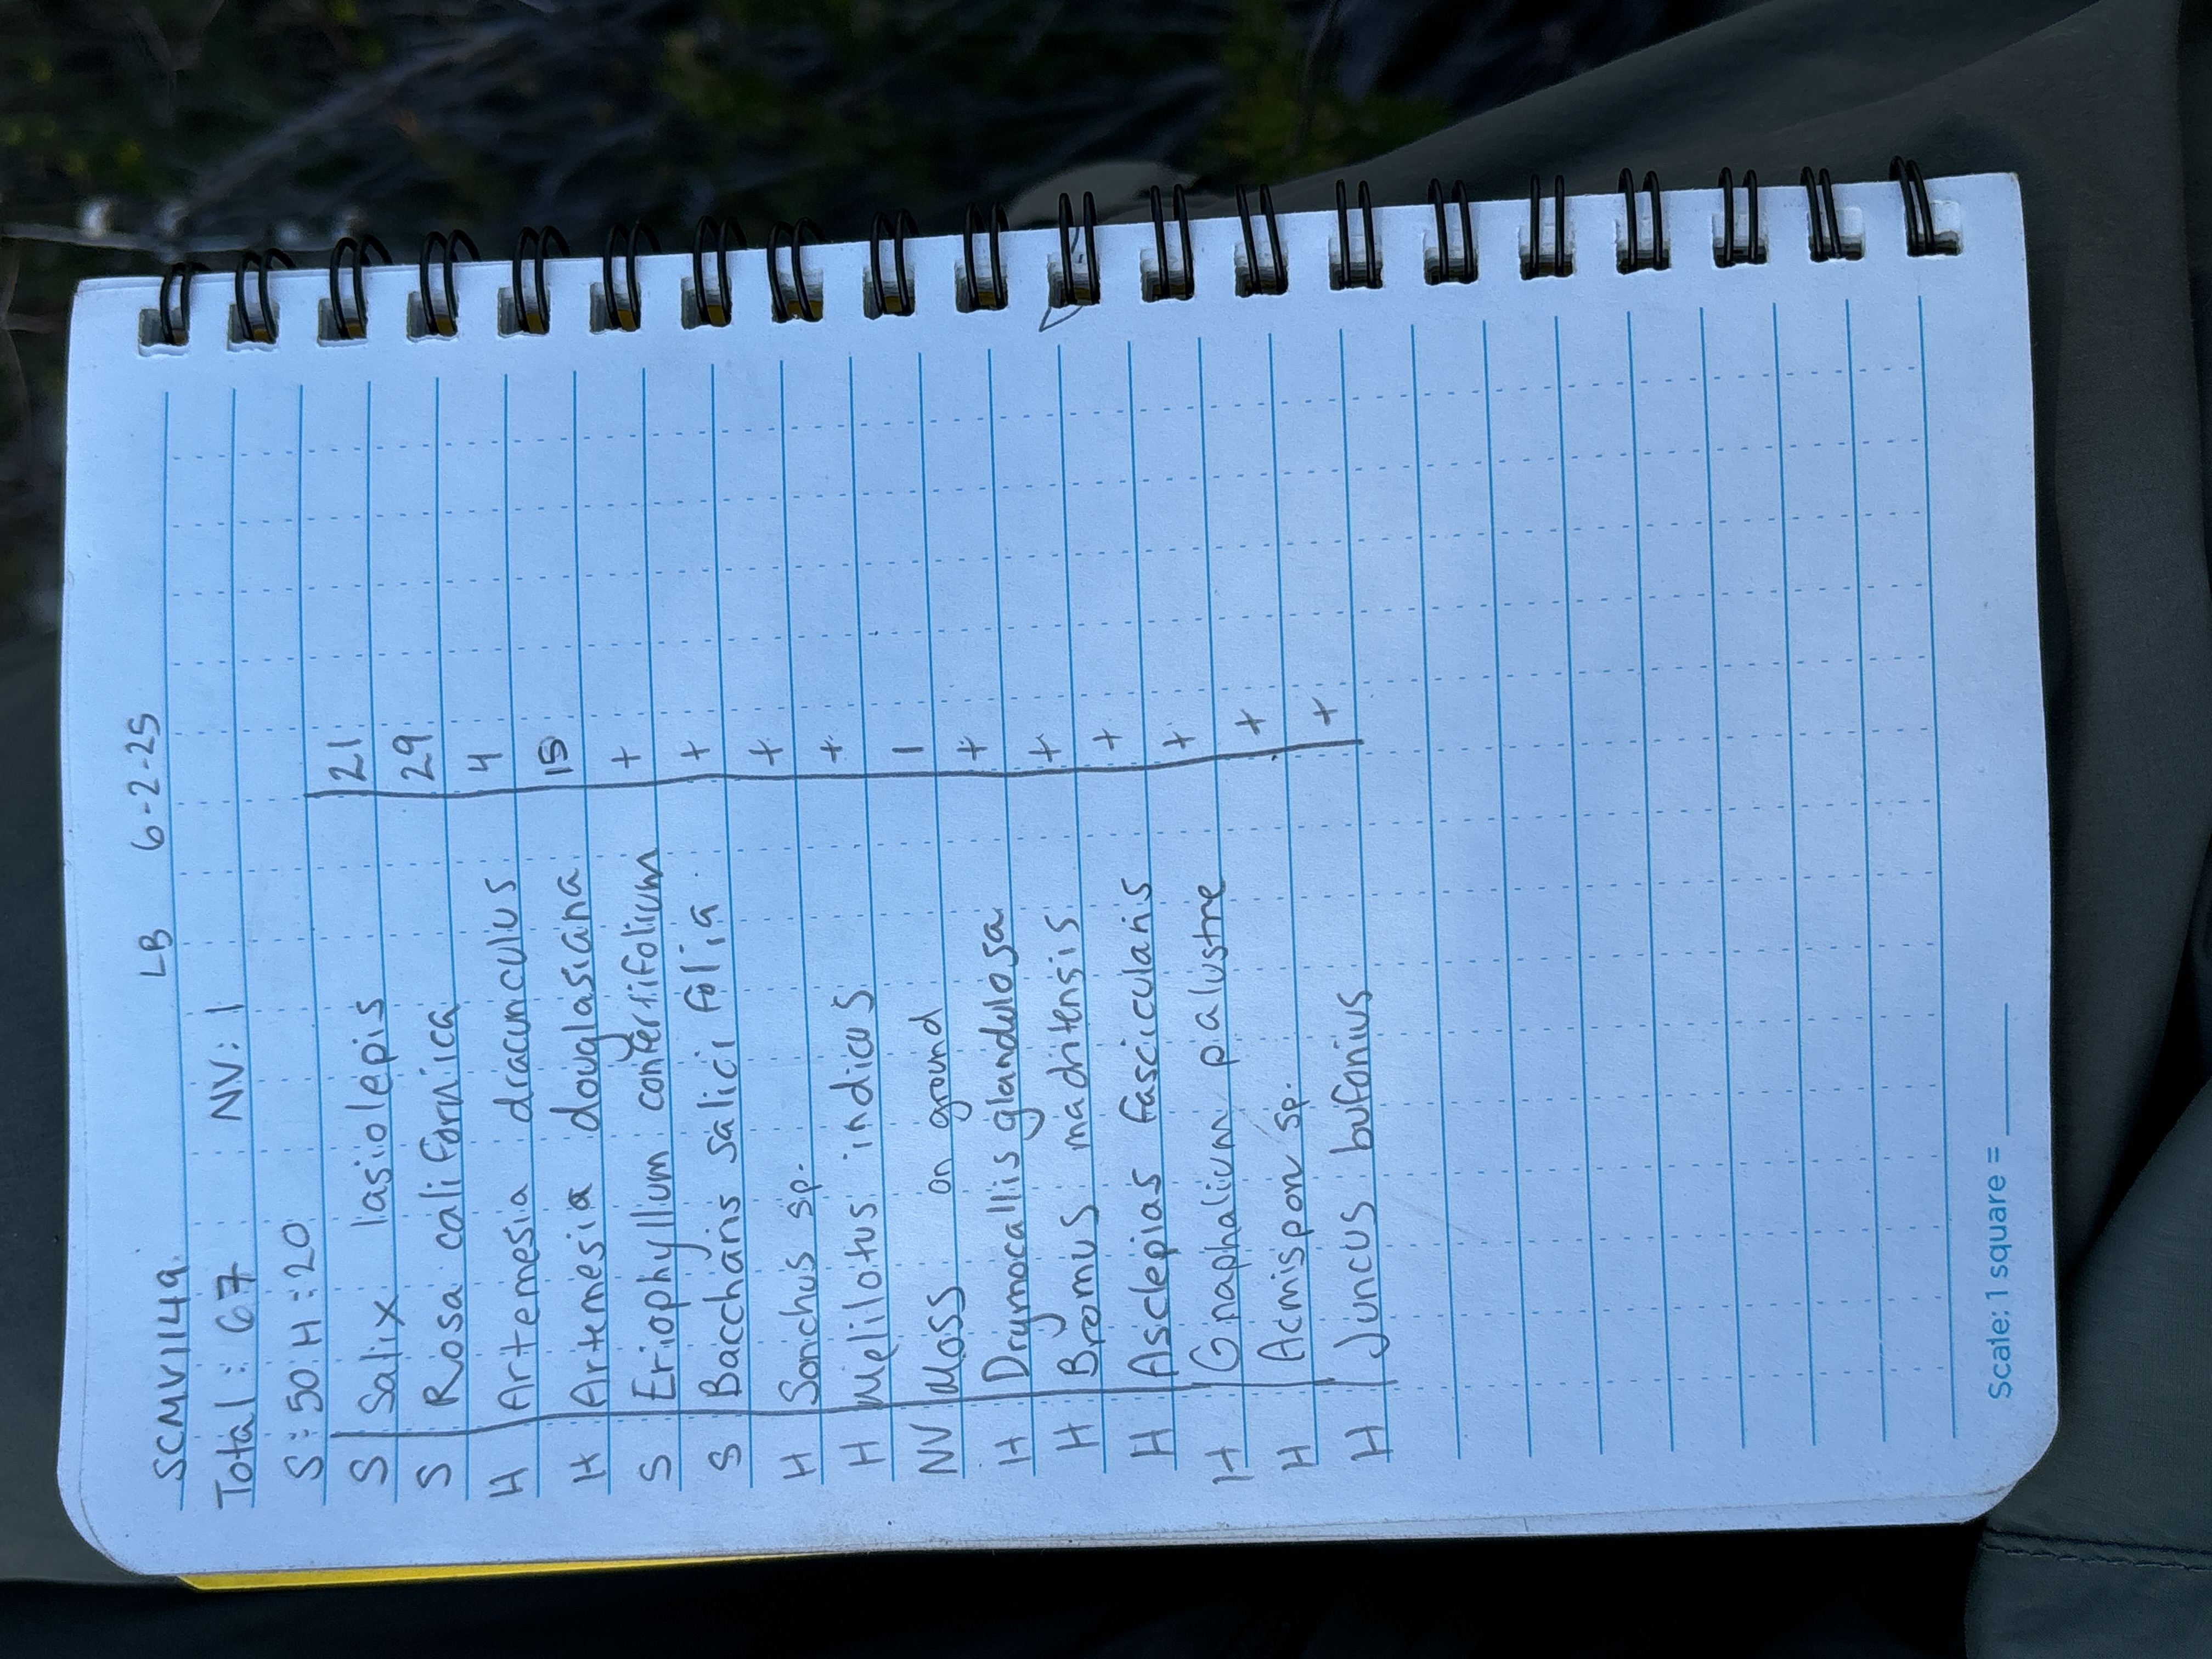 SCMV1149 LB 6-2-25
Total: 67 NV: 1
S: 50 H: 20
S Salix lasiolepis 21
S Rosa californica 29
H Artemesia dracunculus 4
H Artemesia douglasiana 15
S Eriophyllum confertifolium +
S Baccharis salicifolia +
H Sonchus sp. +
H Melilotus indicus +
NV Moss on ground 1
H Drymocallis glandulosa +
H Bromus madritensis +
H Asclepias fascicularis +
H Gnaphalium palustre +
H Acmispon sp. +
H Juncus bufonius +
Scale: 1 square = ____